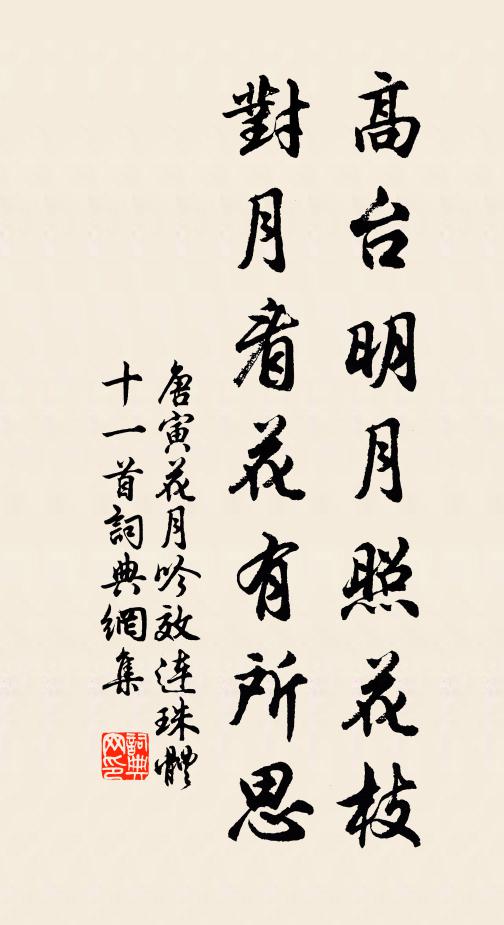 高台明月照花枝
對月看花有所思
唐寅花月吟效连珠體
十一首詞典網集
詞典网印